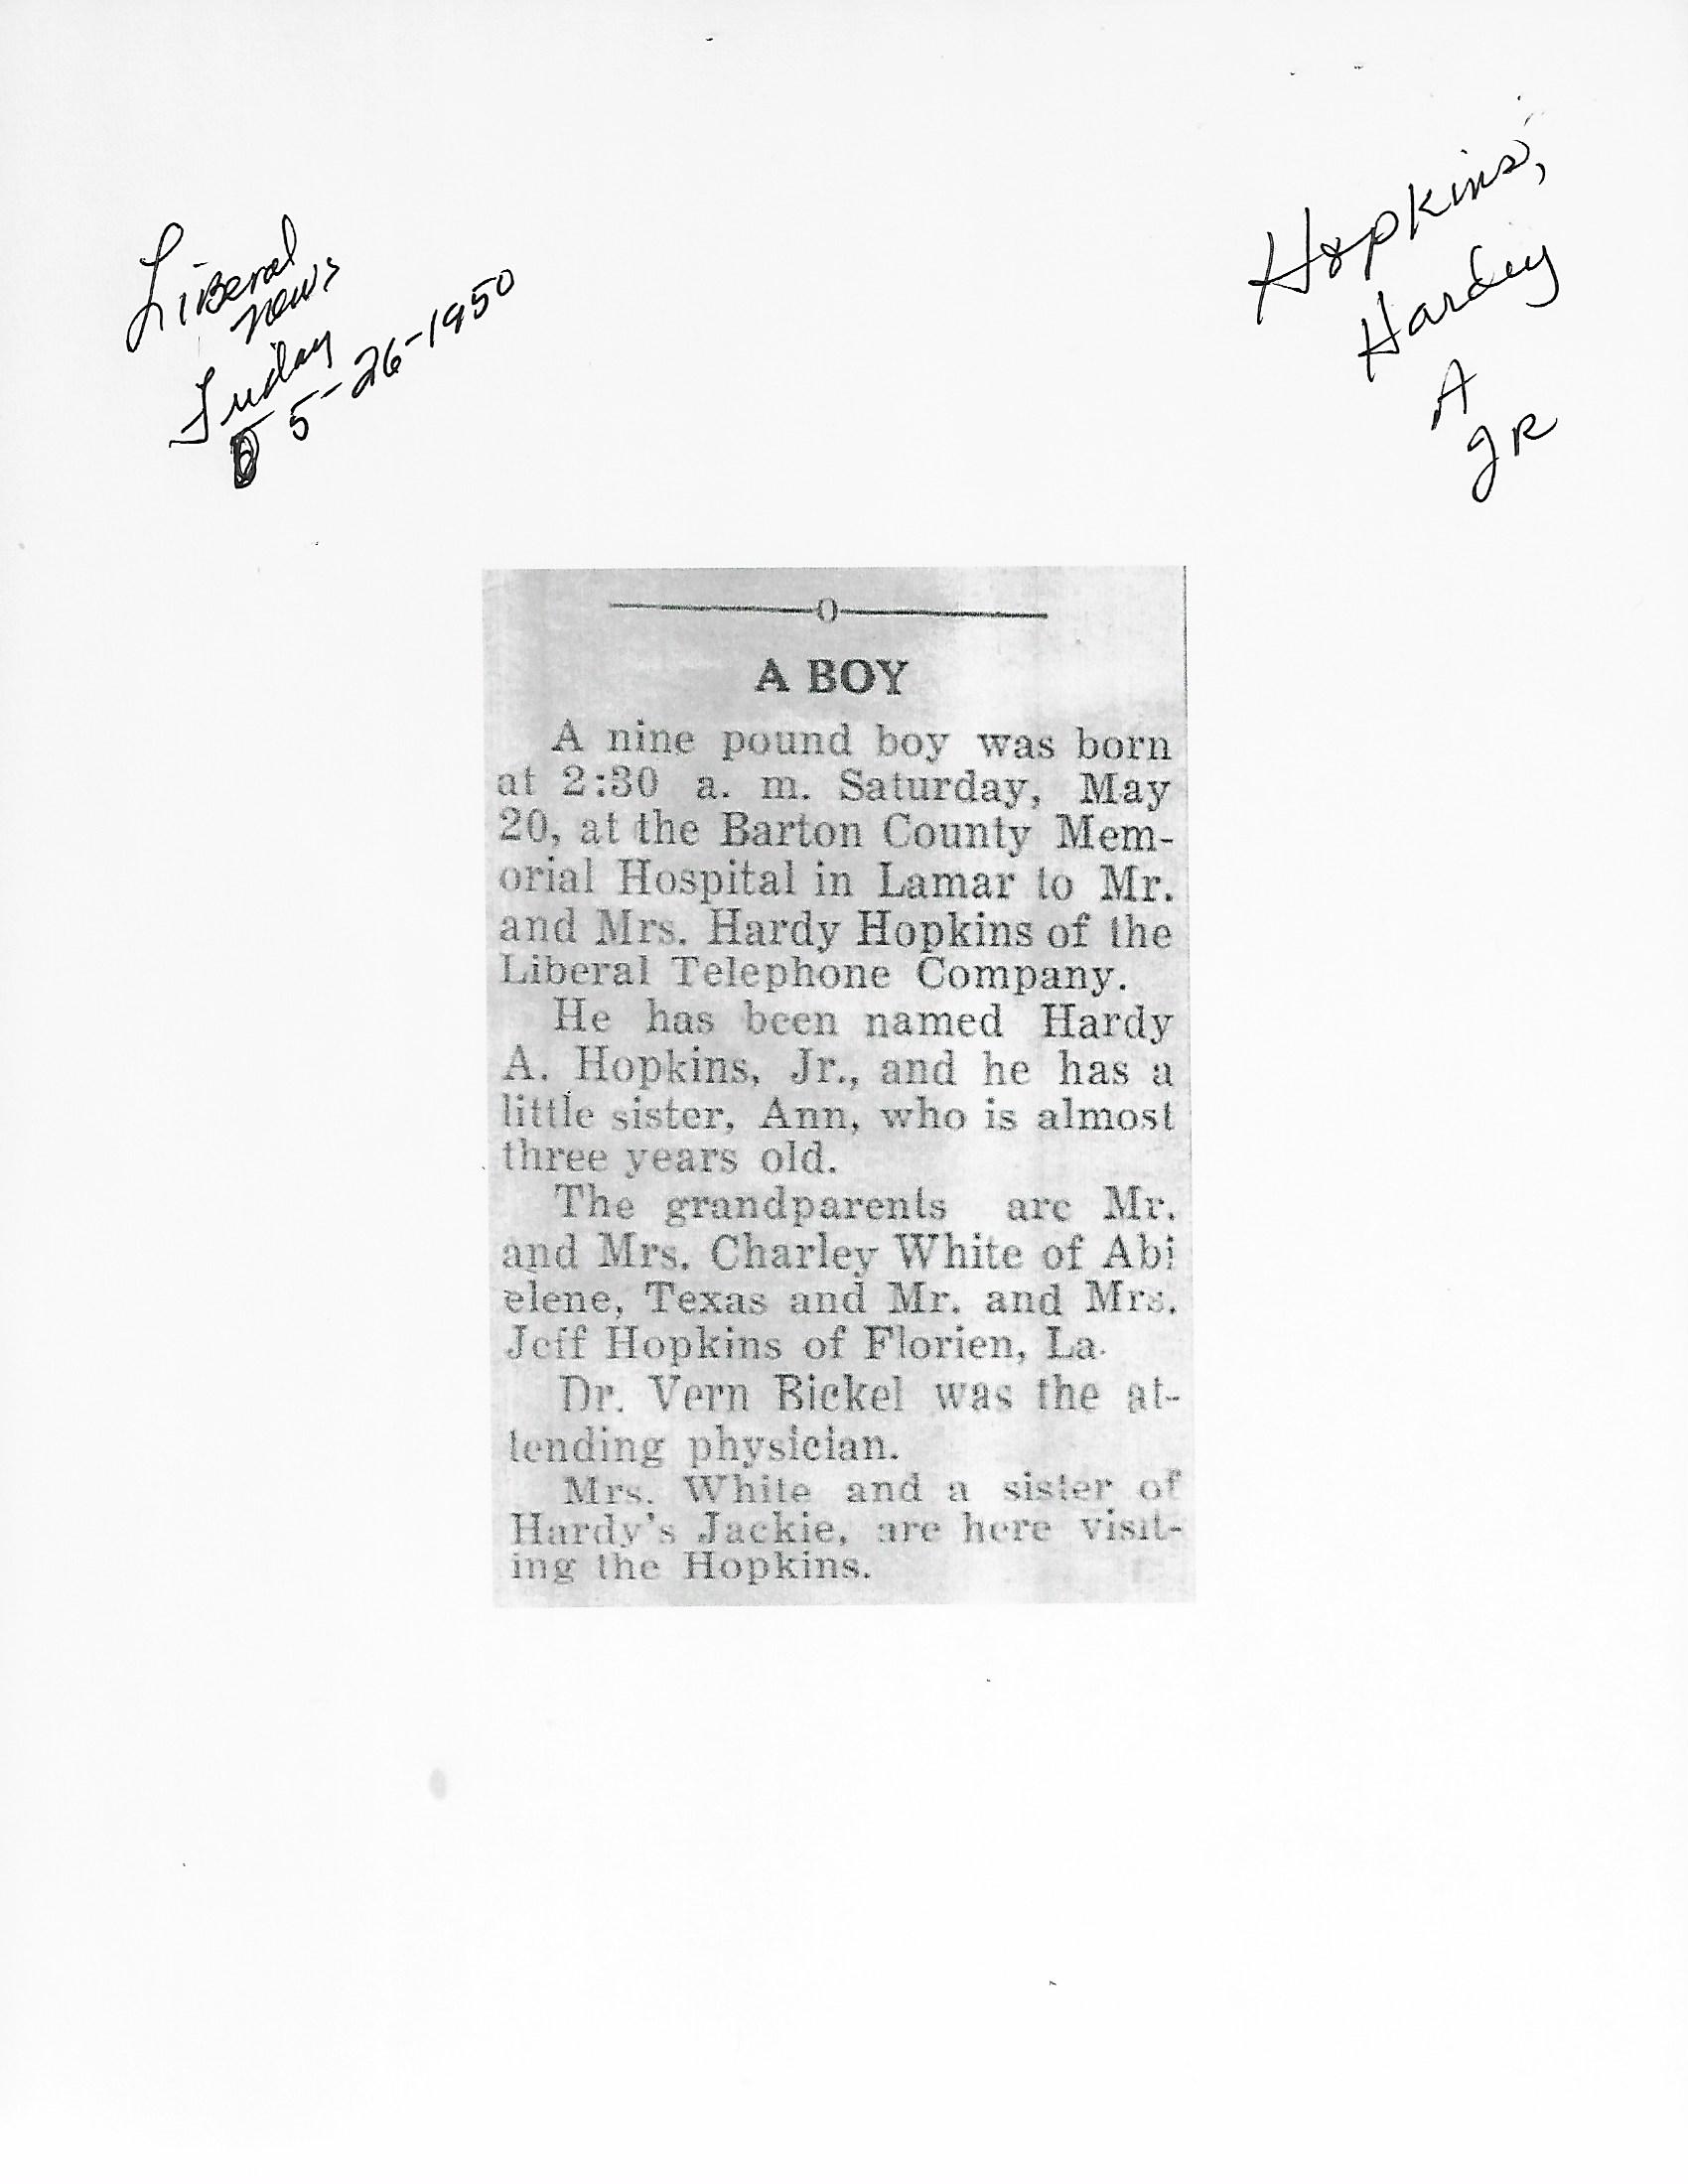 Liberal
News
Friday
5-26-1950
Hopkins,
Hardy
A
JR
O
A BOY
A nine pound boy was born
at 2:30 a. m. Saturday, May
20, at the Barton County Mem-
orial Hospital in Lamar to Mr.
and Mrs. Hardy Hopkins of the
Liberal Telephone Company.
He has been named Hardy
A. Hopkins, Jr., and he has a
little sister, Ann, who is almost
three years old.
The grandparents are Mr.
and Mrs. Charley White of Abi
elene, Texas and Mr. and Mrs.
Jeff Hopkins of Florien, La.
Dr. Vern Bickel was the at-
tending physician.
Mrs. White and a sister of
Hardy's Jackie, are here visit-
ing the Hopkins.